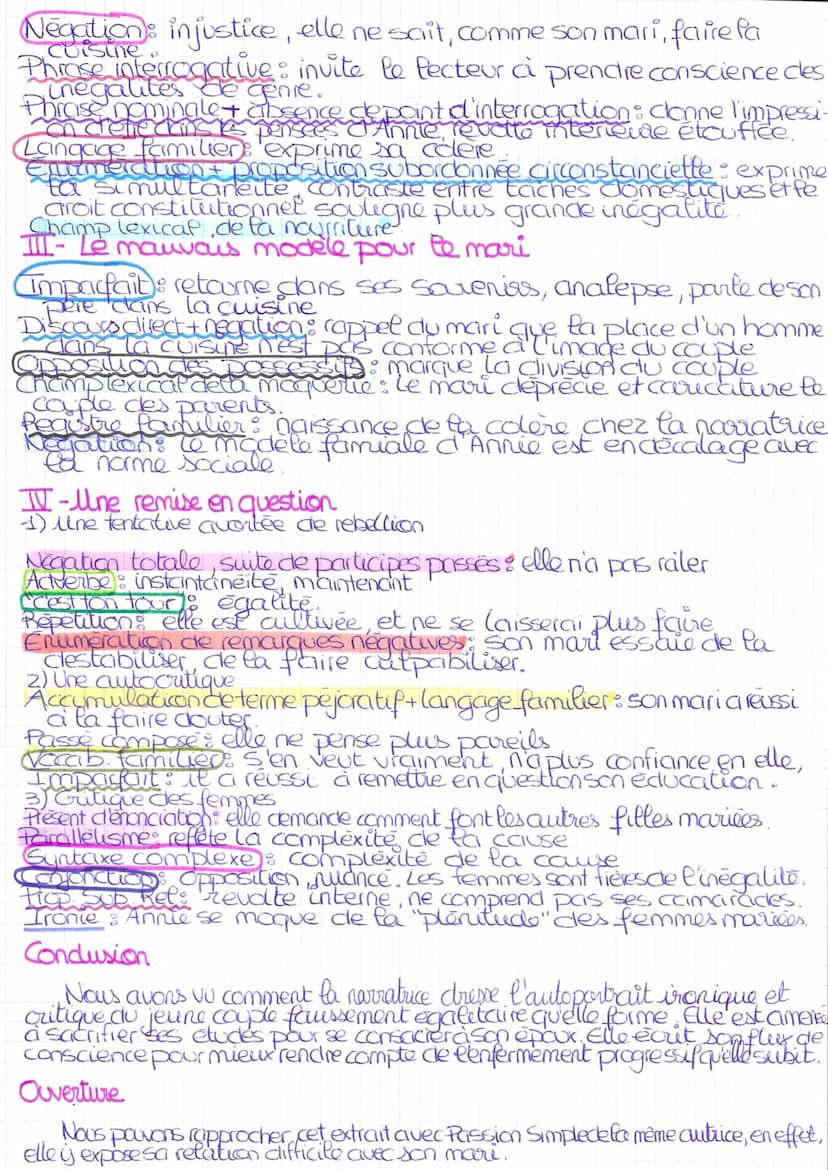 Négation : injustice, elle ne sait, comme son mari, faire la
cuisine.
Phrase interrogative : invite le lecteur à prendre conscience des
inégalités de genre.
Phrase nominale + absence de point d'interrogation : donne l'impressi-
on d'être dans les pensées d'Annie, révolte intérieure étouffée.
Langage familier : exprime sa colère
Enumération + proposition subordonnée circonstancielle : exprime
la simultanéité, contraste entre taches domestiques et le
droit constitutionnel souligne plus grande inégalité.
Champ lexical de la nourriture
III- Le mauvais modèle pour le mari
Imparfait : retourne dans ses souvenirs, analepse, parle de son
père dans la cuisine
Discours direct + négation : rappel du mari que la place d'un homme
dans la cuisine n'est pas conforme à l'image du couple
Opposition des possessifs : marque la division du couple
Champ lexical de la moquerie : Le mari déprécie et caricature le
couple des parents.
Registre familier : naissance de la colère chez la narratrice
Négation : Le modèle familale d'Annie est en décalage avec
la norme sociale.
IV - Une remise en question
1) Une tentative avortée de rébellion
Négation totale, suite de participes passés : elle n'a pas râler
Adverbe : instantanéité, maintenant
"c'est ton tour" : égalité.
Répétition : elle est cultivée, et ne se laisserai plus faire
Enumération de remarques négatives : son mari essaie de la
destabiliser, de la faire culpabiliser.
2) Une autocritique
Accumulation de terme péjoratif + langage familier : son mari a réussi
à la faire douter.
Passé composé : elle ne pense plus pareils
Vocab. familier : s'en veut vraiment, n'a plus confiance en elle,
Imparfait : il a réussi à remettre en question son éducation.
3) Critique des femmes
Présent d'énonciation : elle demande comment font les autres filles mariées.
Parallélisme : reflète la compléxité de la cause
Syntaxe complexe : compléxité de la cause
Conjonction : Opposition, nuance. Les femmes sont fières de l'inégalité.
Prop. Sub. Rel : révolte interne, ne comprend pas ses camarades.
Ironie : Annie se moque de la "plénitude" des femmes mariées.
Conclusion
Nous avons vu comment la narratrice dresse l'autoportrait ironique et
critique du jeune couple faussement égalitaire qu'elle forme. Elle est amenée
à sacrifier ses études pour se consacrer à son époux. Elle écrit son flux de
conscience pour mieux rendre compte de l'enfermement progressif qu'elle subit.
Ouverture
Nous pouvons rapprocher cet extrait avec Passion Simple de la même autrice, en effet,
elle y expose sa relation difficile avec son mari.